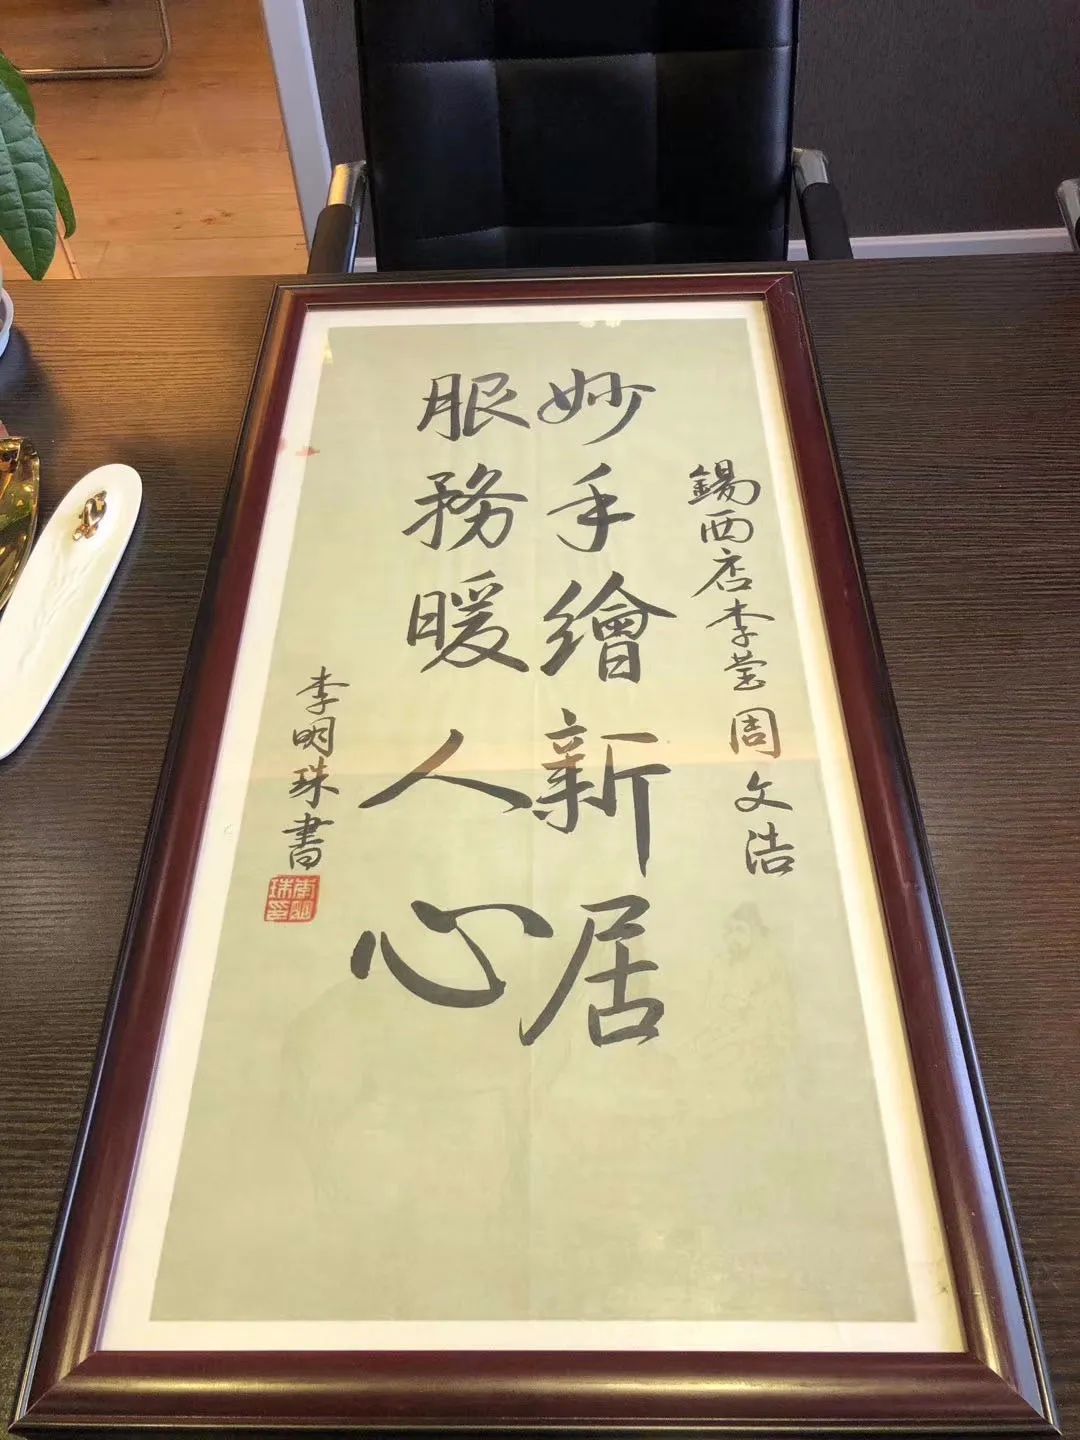 錫西店李莹周文浩
妙手繪新居
服務暖人心
李明珠書